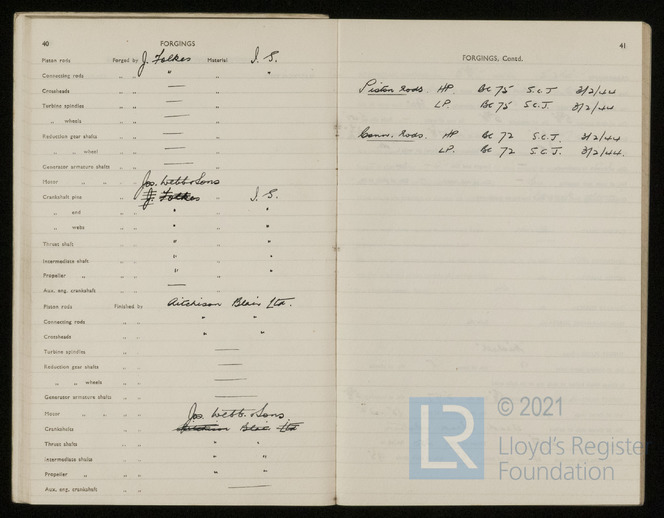 40 FORGINGS
Piston rods Forged by J. Folkes Material I. S.
Connecting rods „ „ " „ "
Crossheads „ „ — „
Turbine spindles „ „ — „
„ wheels „ „ — „
Reduction gear shafts „ „ — „
„ „ wheel „ „ — „
Generator armature shafts „ „ — „
Motor „ „ „ „ Jos. Webb & Sons
Crankshaft pins „ „ J. Folkes „ I. S.
„ end „ „ " „ "
„ webs „ „ " „ "
Thrust shaft „ „ " „ "
Intermediate shaft „ „ " „ "
Propeller „ „ „ " „ "
Aux. eng. crankshaft „ „ —
Piston rods Finished by Aitchison Blair Ltd.
Connecting rods „ „ " "
Crossheads „ „ " "
Turbine spindles „ „ —
Reduction gear shafts „ „ —
„ „ wheels „ „ —
Generator armature shafts „ „ —
Motor „ „ „ „ Jos. Webb & Sons
Crankshafts „ „ Aitchison Blair Ltd
Thrust shafts „ „ " "
Intermediate shafts „ „ " "
Propeller „ „ „ " "
Aux. eng. crankshaft „ „ —
41
FORGINGS, Contd.
Piston rods. HP BC 75 S.C.J 3/2/44
LP BC 75 S.C.J. 3/2/44
Conn. Rods. HP BC 72 S.C.J. 3/2/44
LP. BC 72 S.C.J. 3/2/44.
LR
© 2021
Lloyd's Register
Foundation